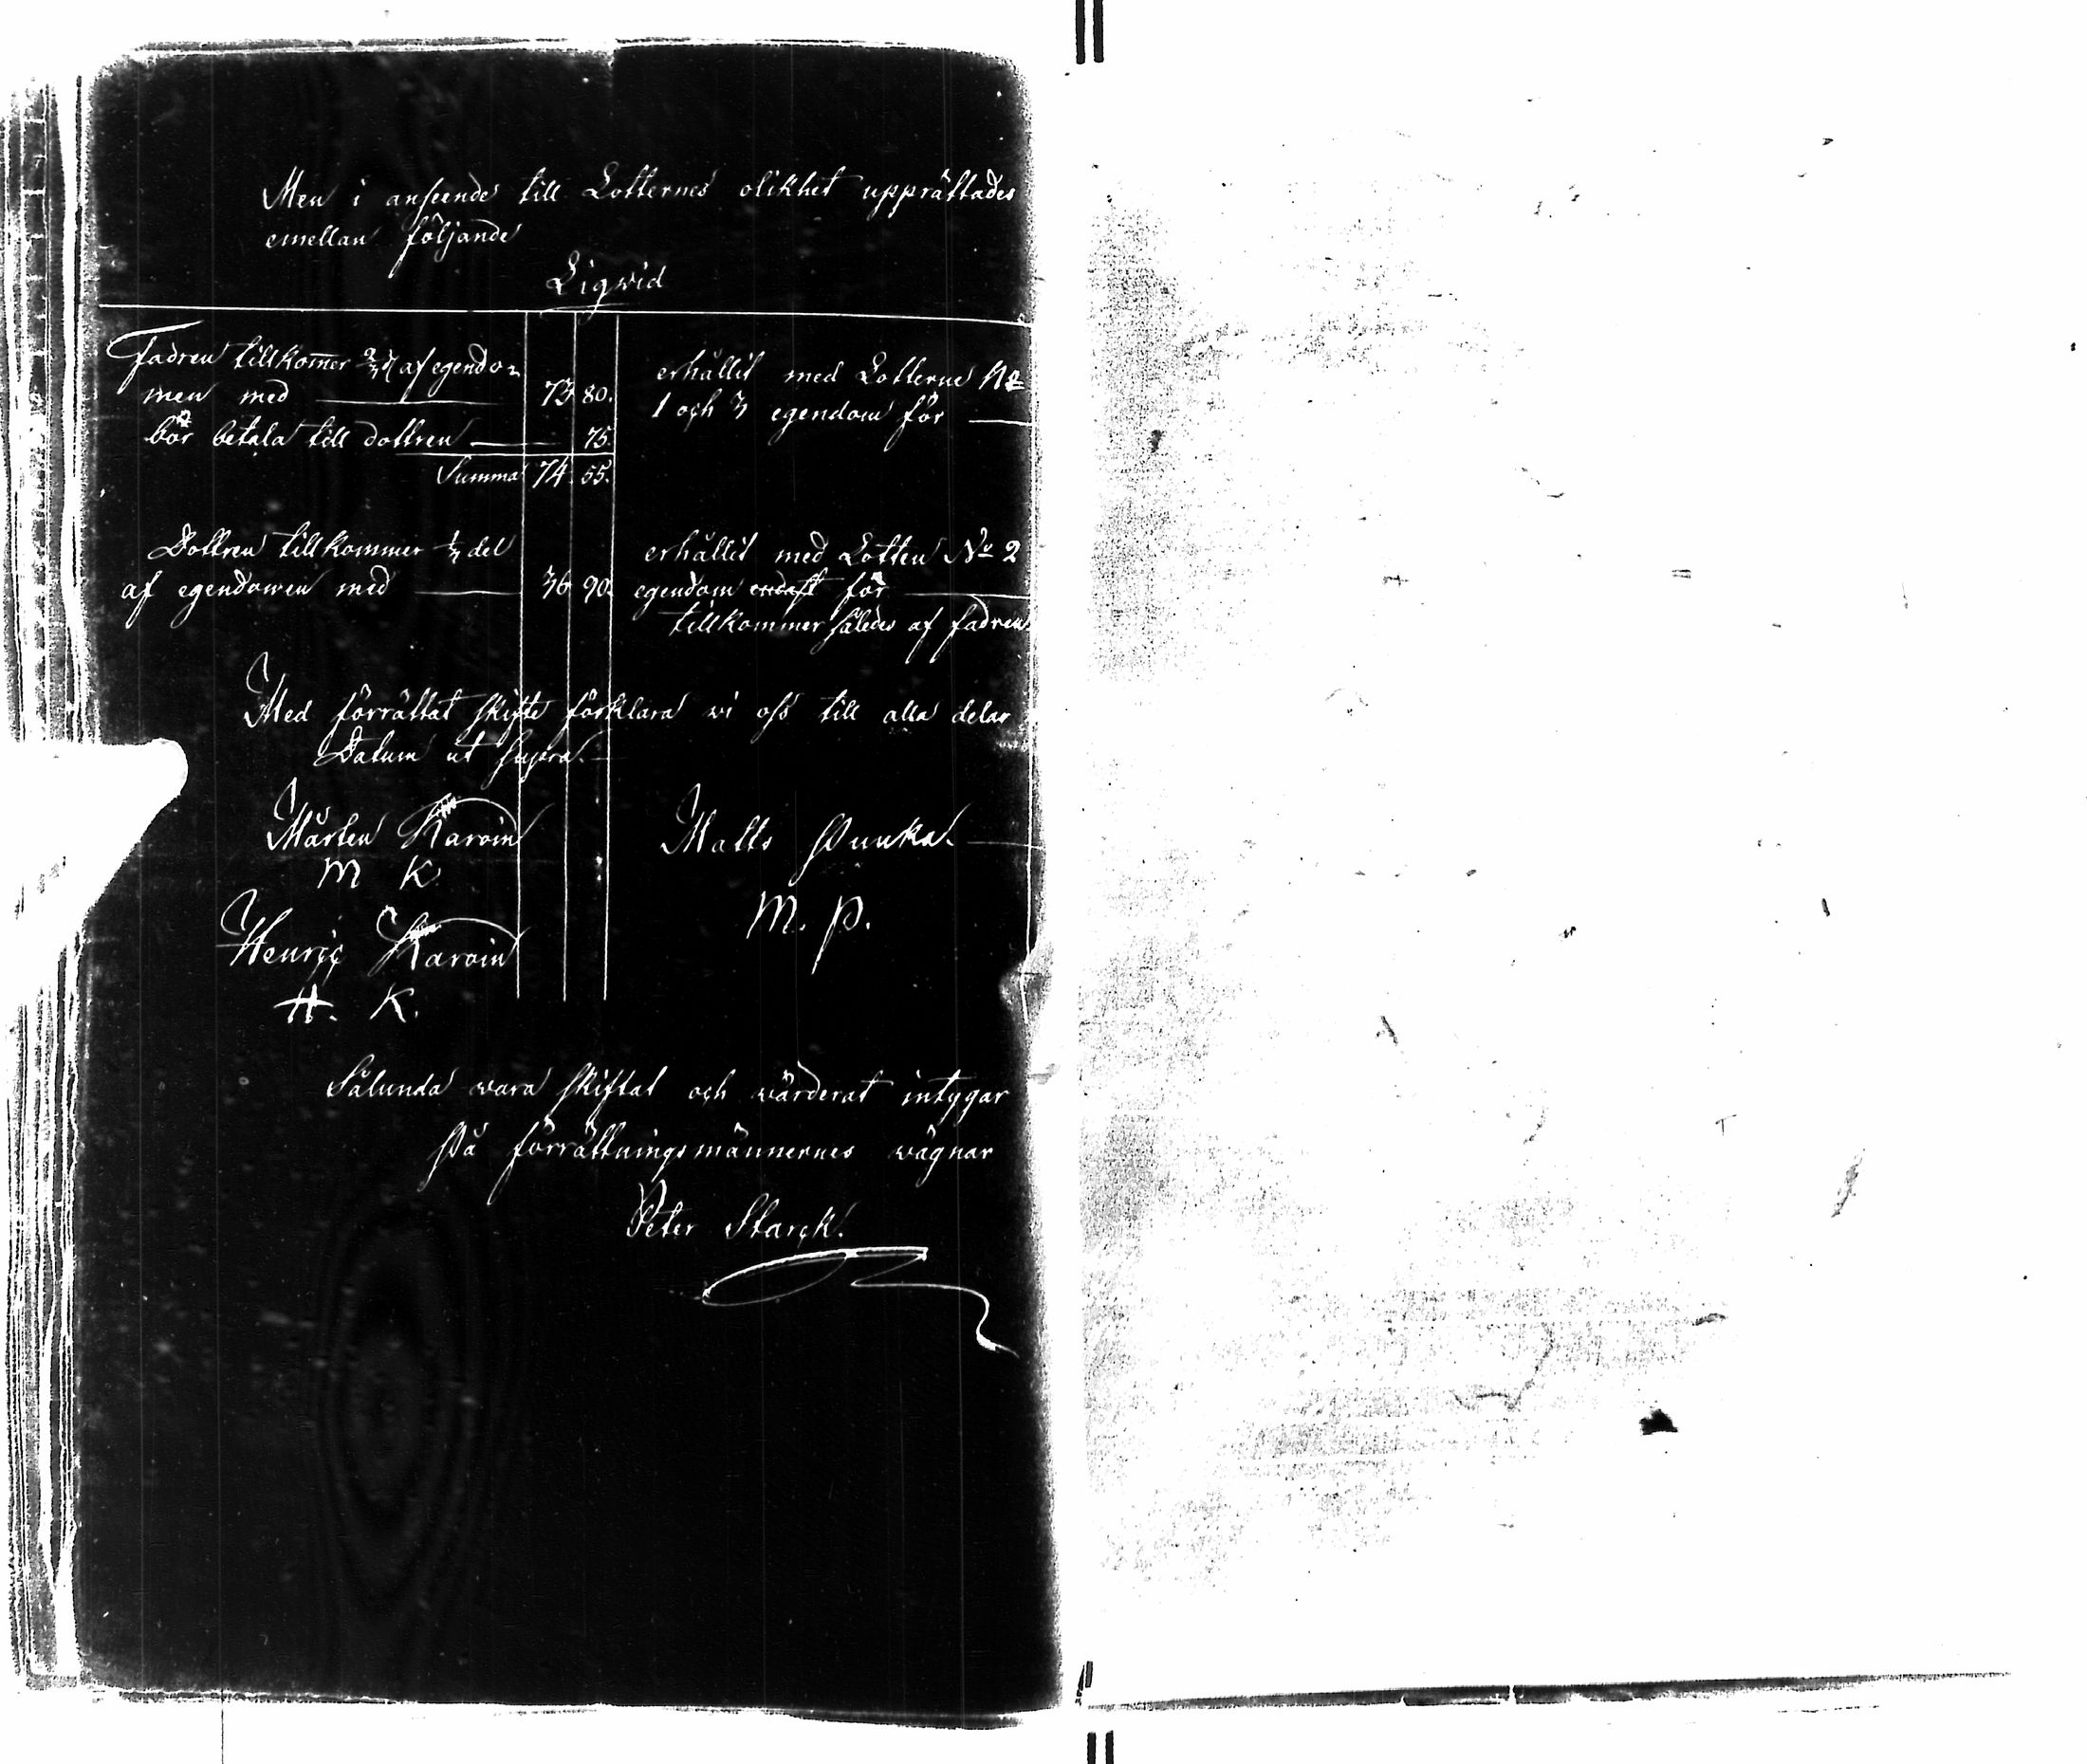 Men i anseende till Lotternes olikhet upprättades
emellan följande
Liqvid
Fadren tillkomer 2/3 af egendo-
men med 73 80.
bör betala till dottren 75.
Summa 74. 55.
erhållit med Lotterne No
1 och 3 egendom för
Dottren tillkommer 1/3 del
af egendomen med 36 90.
erhållit med Lotten No 2
egendom endast för
tillkommer således af fadren
Med förrättat skifte förklara wi oss till alla delar
Datum ut supra.
Mårten Karvin
M K
Matts Punka.
M. P.
Henric Karvin
H. K.
Sålunda wara skiftat och wärderat intygar
På förrättningsmännernes wägnar
Peter Starck.